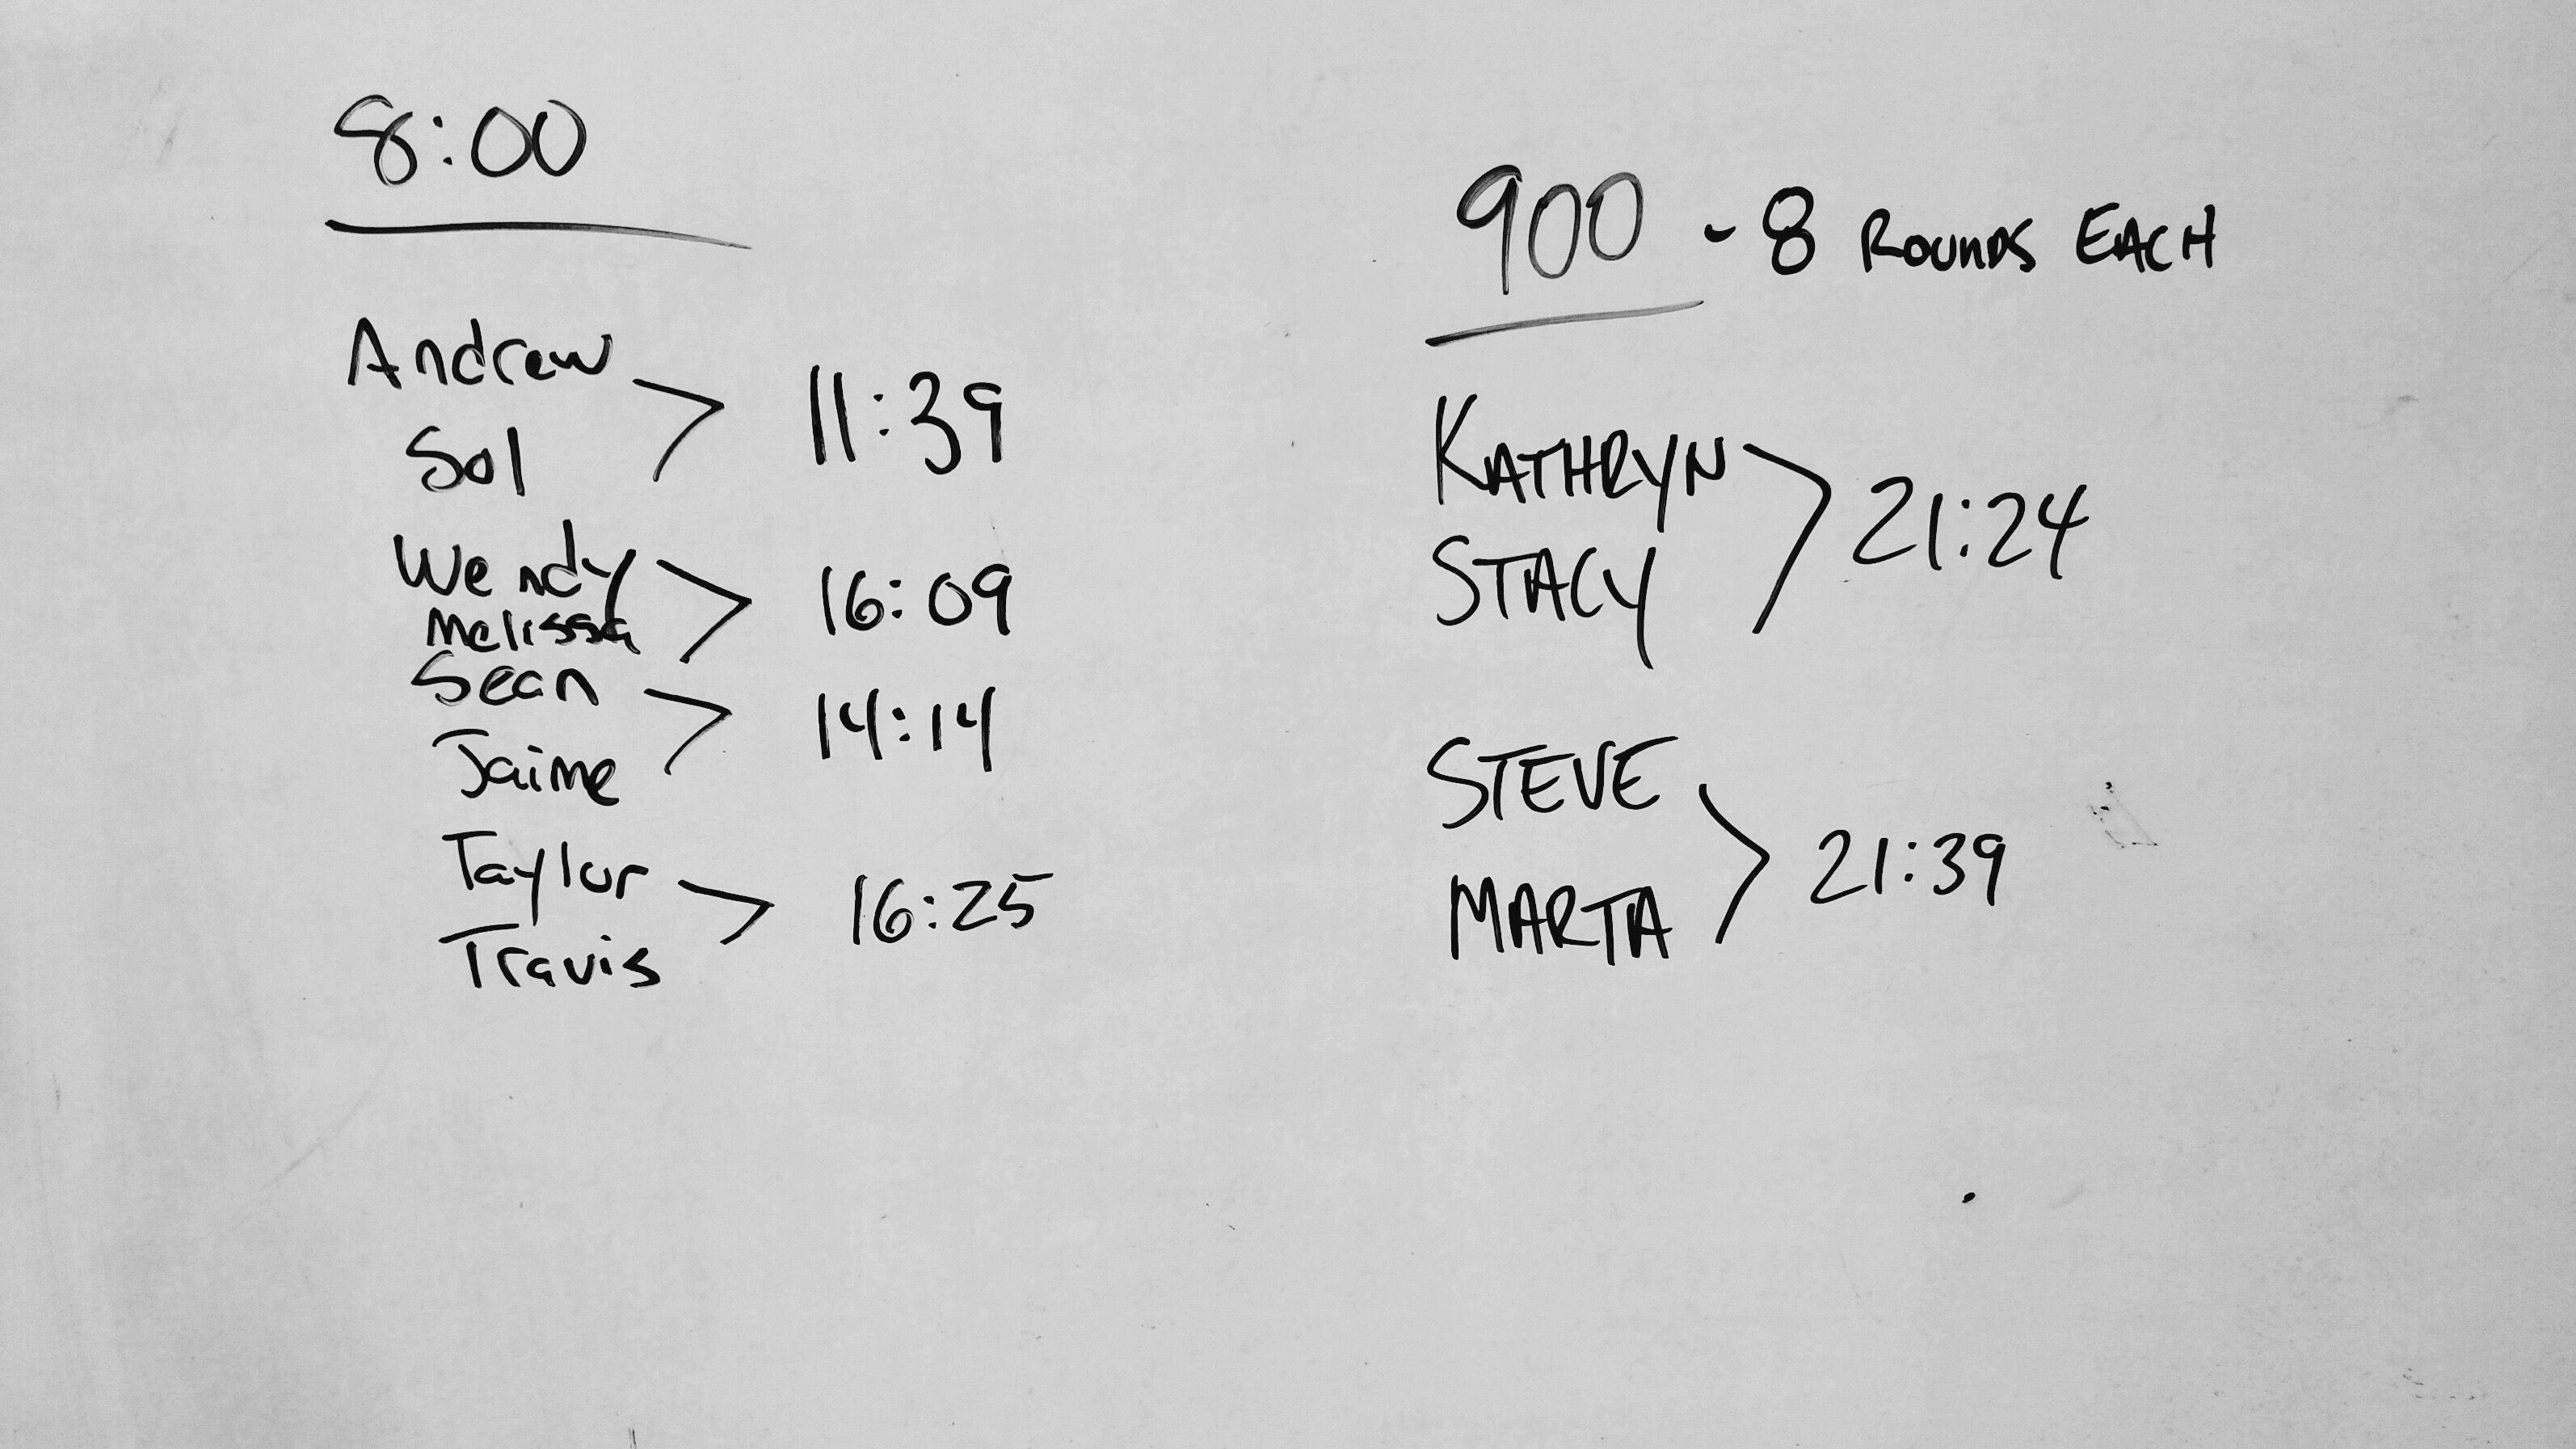 8:00
Andrew
Sol
11:39
Wendy
Melissa
16:09
Sean
Jaime
14:14
Taylor
Travis
16:25
900 - 8 ROUNDS EACH
KATHRYN
STACY
21:24
STEVE
MARTA
21:39